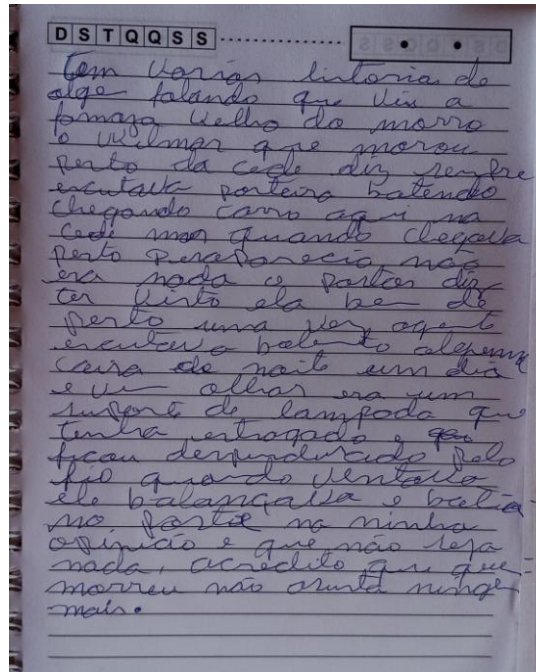 D S T Q Q S S
Tem varias historia de
alge falando que viu a
famaza velha do morro
o Wilmar que morou
perto da cede diz sempre
escutava porteira batendo
chegando carro aqui na
cede mas quando chegava
perto desaparecia não
era nada o pastor diz
ter visto ela bem de
perto uma vez agente
escutava batento alguma
coisa de noite um dia
e vi olhar era um
suporte de lampada que
tinha estragado e
ficou despindurado pelo
fio quando ventava
ele balançava e batia
no poste na minha
opinião e que não seja
nada, acredito que quem
morreu não asusta ninge
mais.